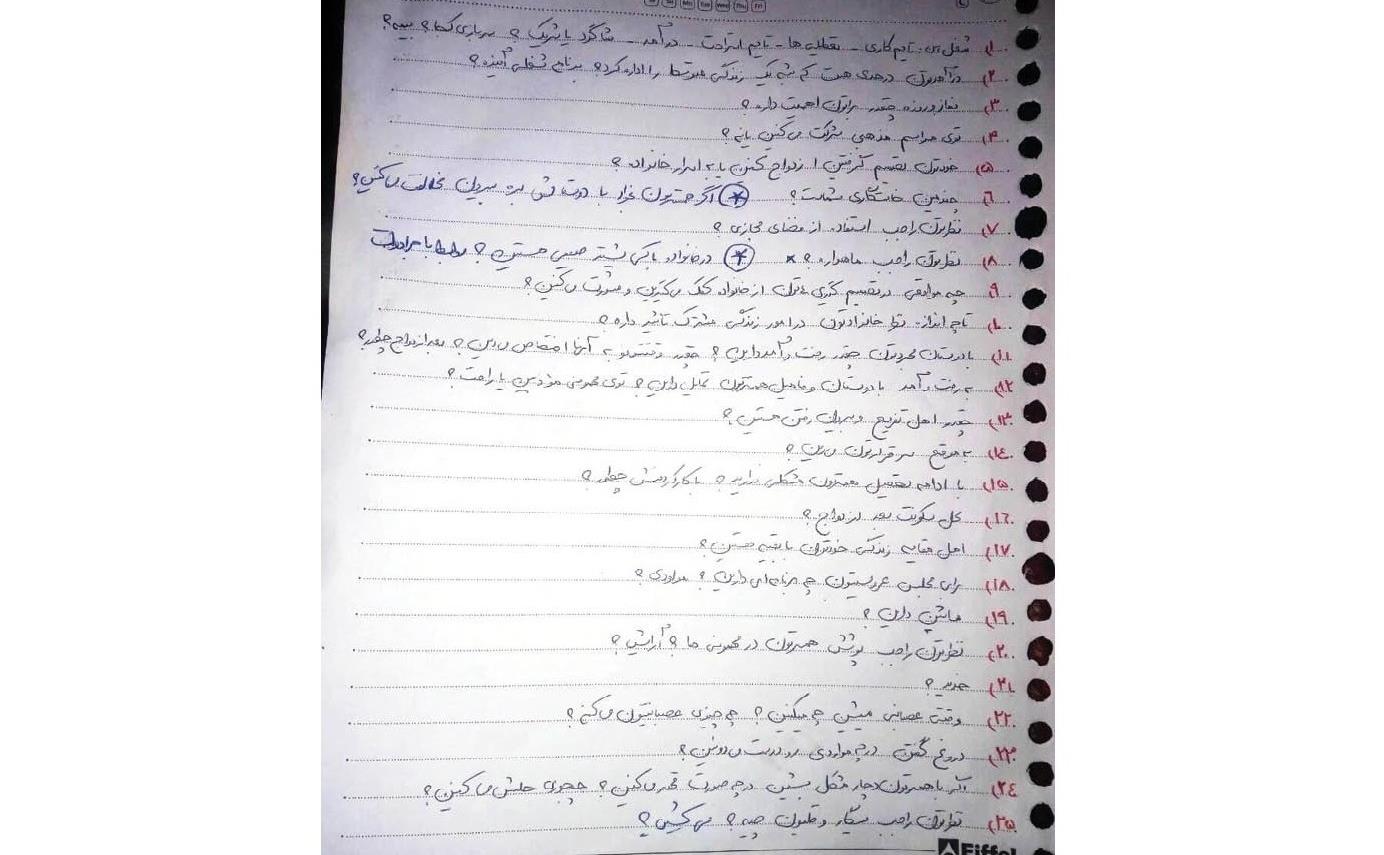 Sa Su Mo Tue Wed Thu Fri
۱) شغلتون - تایم کاری - تعطیلی ها - تایم استراحت - درآمد - شاگرد یا شریک؟ سربازی کجا؟ بیمه؟
۲) درآمدتون درحدی هست که بشه یک زندگی متوسط را اداره کرد؟ برنامه شغلی آینده؟
۳) نماز و روزه چقدر براتون اهمیت داره؟
۴) توی مراسم مذهبی شرکت می کنین یا نه؟
۵) خودتون تصمیم گرفتین ازدواج کنین یا به اصرار خانواده؟
۶) چندمین خاستگاری شماست؟ * اگر همسرتون بخواد با دوستاش بره بیرون مخالفت می کنین؟
۷) نظرتون راجب استفاده از فضای مجازی؟
۸) نظرتون راجب ماهواره؟ * * درخانواده با کی بیشتر صمیمی هستین؟ روابط با
۹) چه مواقعی در تصمیم گیری هاتون از خانواده کمک می گیرین و مشورت می کنین؟
۱۰) تا چه اندازه نظر خانوادتون در امور زندگی مشترک تاثیر داره؟
۱۱) با دوستان مجردتون چقدر رفت و آمد دارین؟ چقدر وقتتونو به آنها اختصاص میدین؟ بعد از ازدواج چطور؟
۱۲) به رفت و آمد با دوستان و فامیل همسرتون تمایل دارین؟ توی مهمونی مؤدبین یا راحت؟
۱۳) چقدر اهل تفریح و بیرون رفتن هستین؟
۱۴) به موقع سر قرارتون میرین؟
۱۵) با ادامه تحصیل همسرتون مشکلی ندارید؟ با کار کردنش چطور؟
۱۶) محل سکونت بعد از ازدواج؟
۱۷) اهل مقایسه زندگی خودتون با بقیه هستین؟
۱۸) برای مجلس عروسیتون چه برنامه ای دارین؟ مولودی؟
۱۹) ماشین دارین؟
۲۰) نظرتون راجب پوشش همسرتون در مهمونی ها؟ آرایش؟
۲۱) جهیزیه؟
۲۲) وقتی عصبانی میشین چه میکنین؟ چه چیزی عصبانیتون می کنه؟
۲۳) دروغ گفتن در چه مواردی رو درست می دونین؟
۲۴) اگر با همسرتون دچار مشکل بشین در چه صورت قهر می کنین؟ چجوری حلش می کنین؟
۲۵) نظرتون راجب سیگار و قلیون چیه؟ می کشین؟
Eiffel